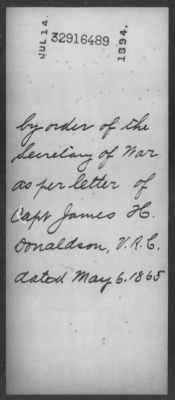 JUL 14. 32916489 1894.
by order of the
Secretary of War
as per letter of
Capt James H.
Donaldson, V.R.C.
dated May 6. 1865